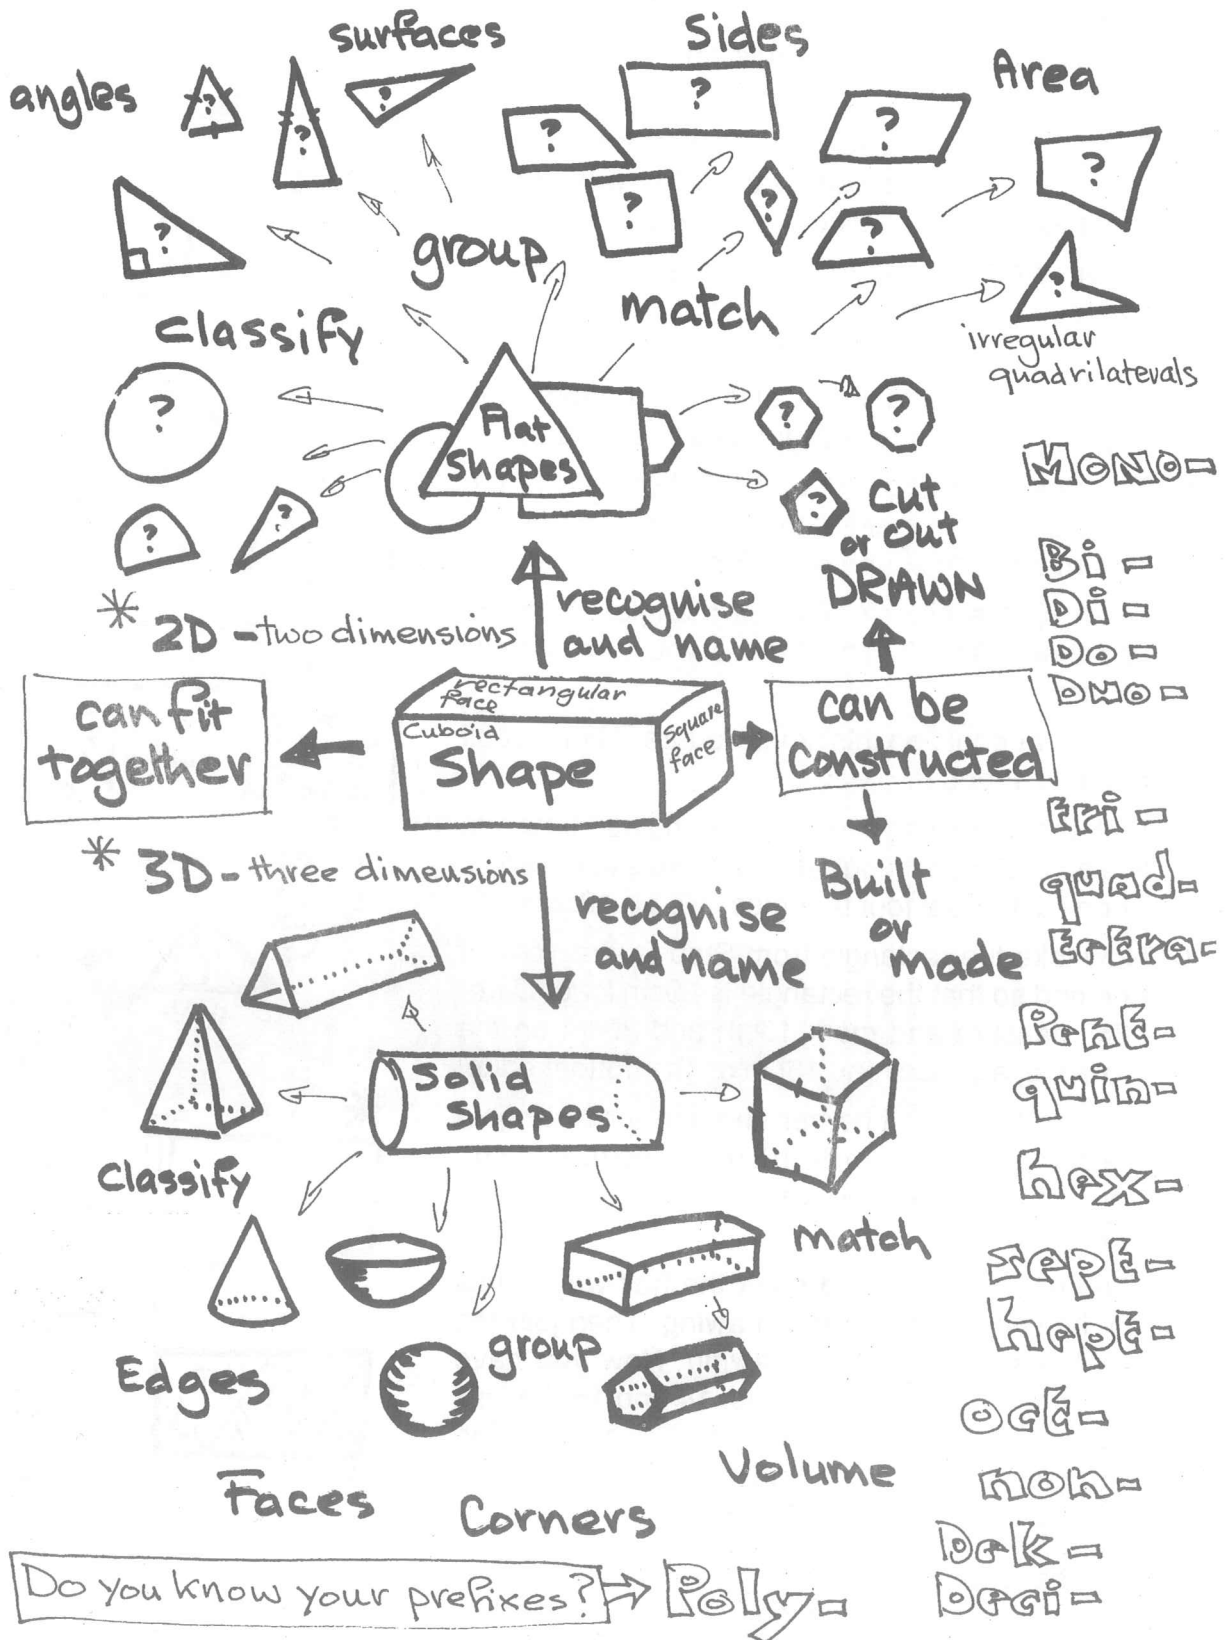 surfaces
Sides
angles
Area
?
?
?
?
?
?
?
?
?
?
?
?
?
group
match
classify
irregular
quadrilaterals
?
?
?
?
?
?
Flat
Shapes
cut
or out
DRAWN
* 2D - two dimensions
recognise
and name
can fit
together
rectangular
face
Cuboid
Shape
square
face
can be
constructed
* 3D - three dimensions
recognise
and name
Built
or
made
Solid
Shapes
Classify
match
group
Edges
Volume
Faces
Corners
Do you know your prefixes?
Poly-
Mono-
Bi-
Di-
Do-
Duo-
tri-
quad-
tetra-
Pent-
quin-
hex-
sept-
hept-
oct-
non-
Dek-
Deci-